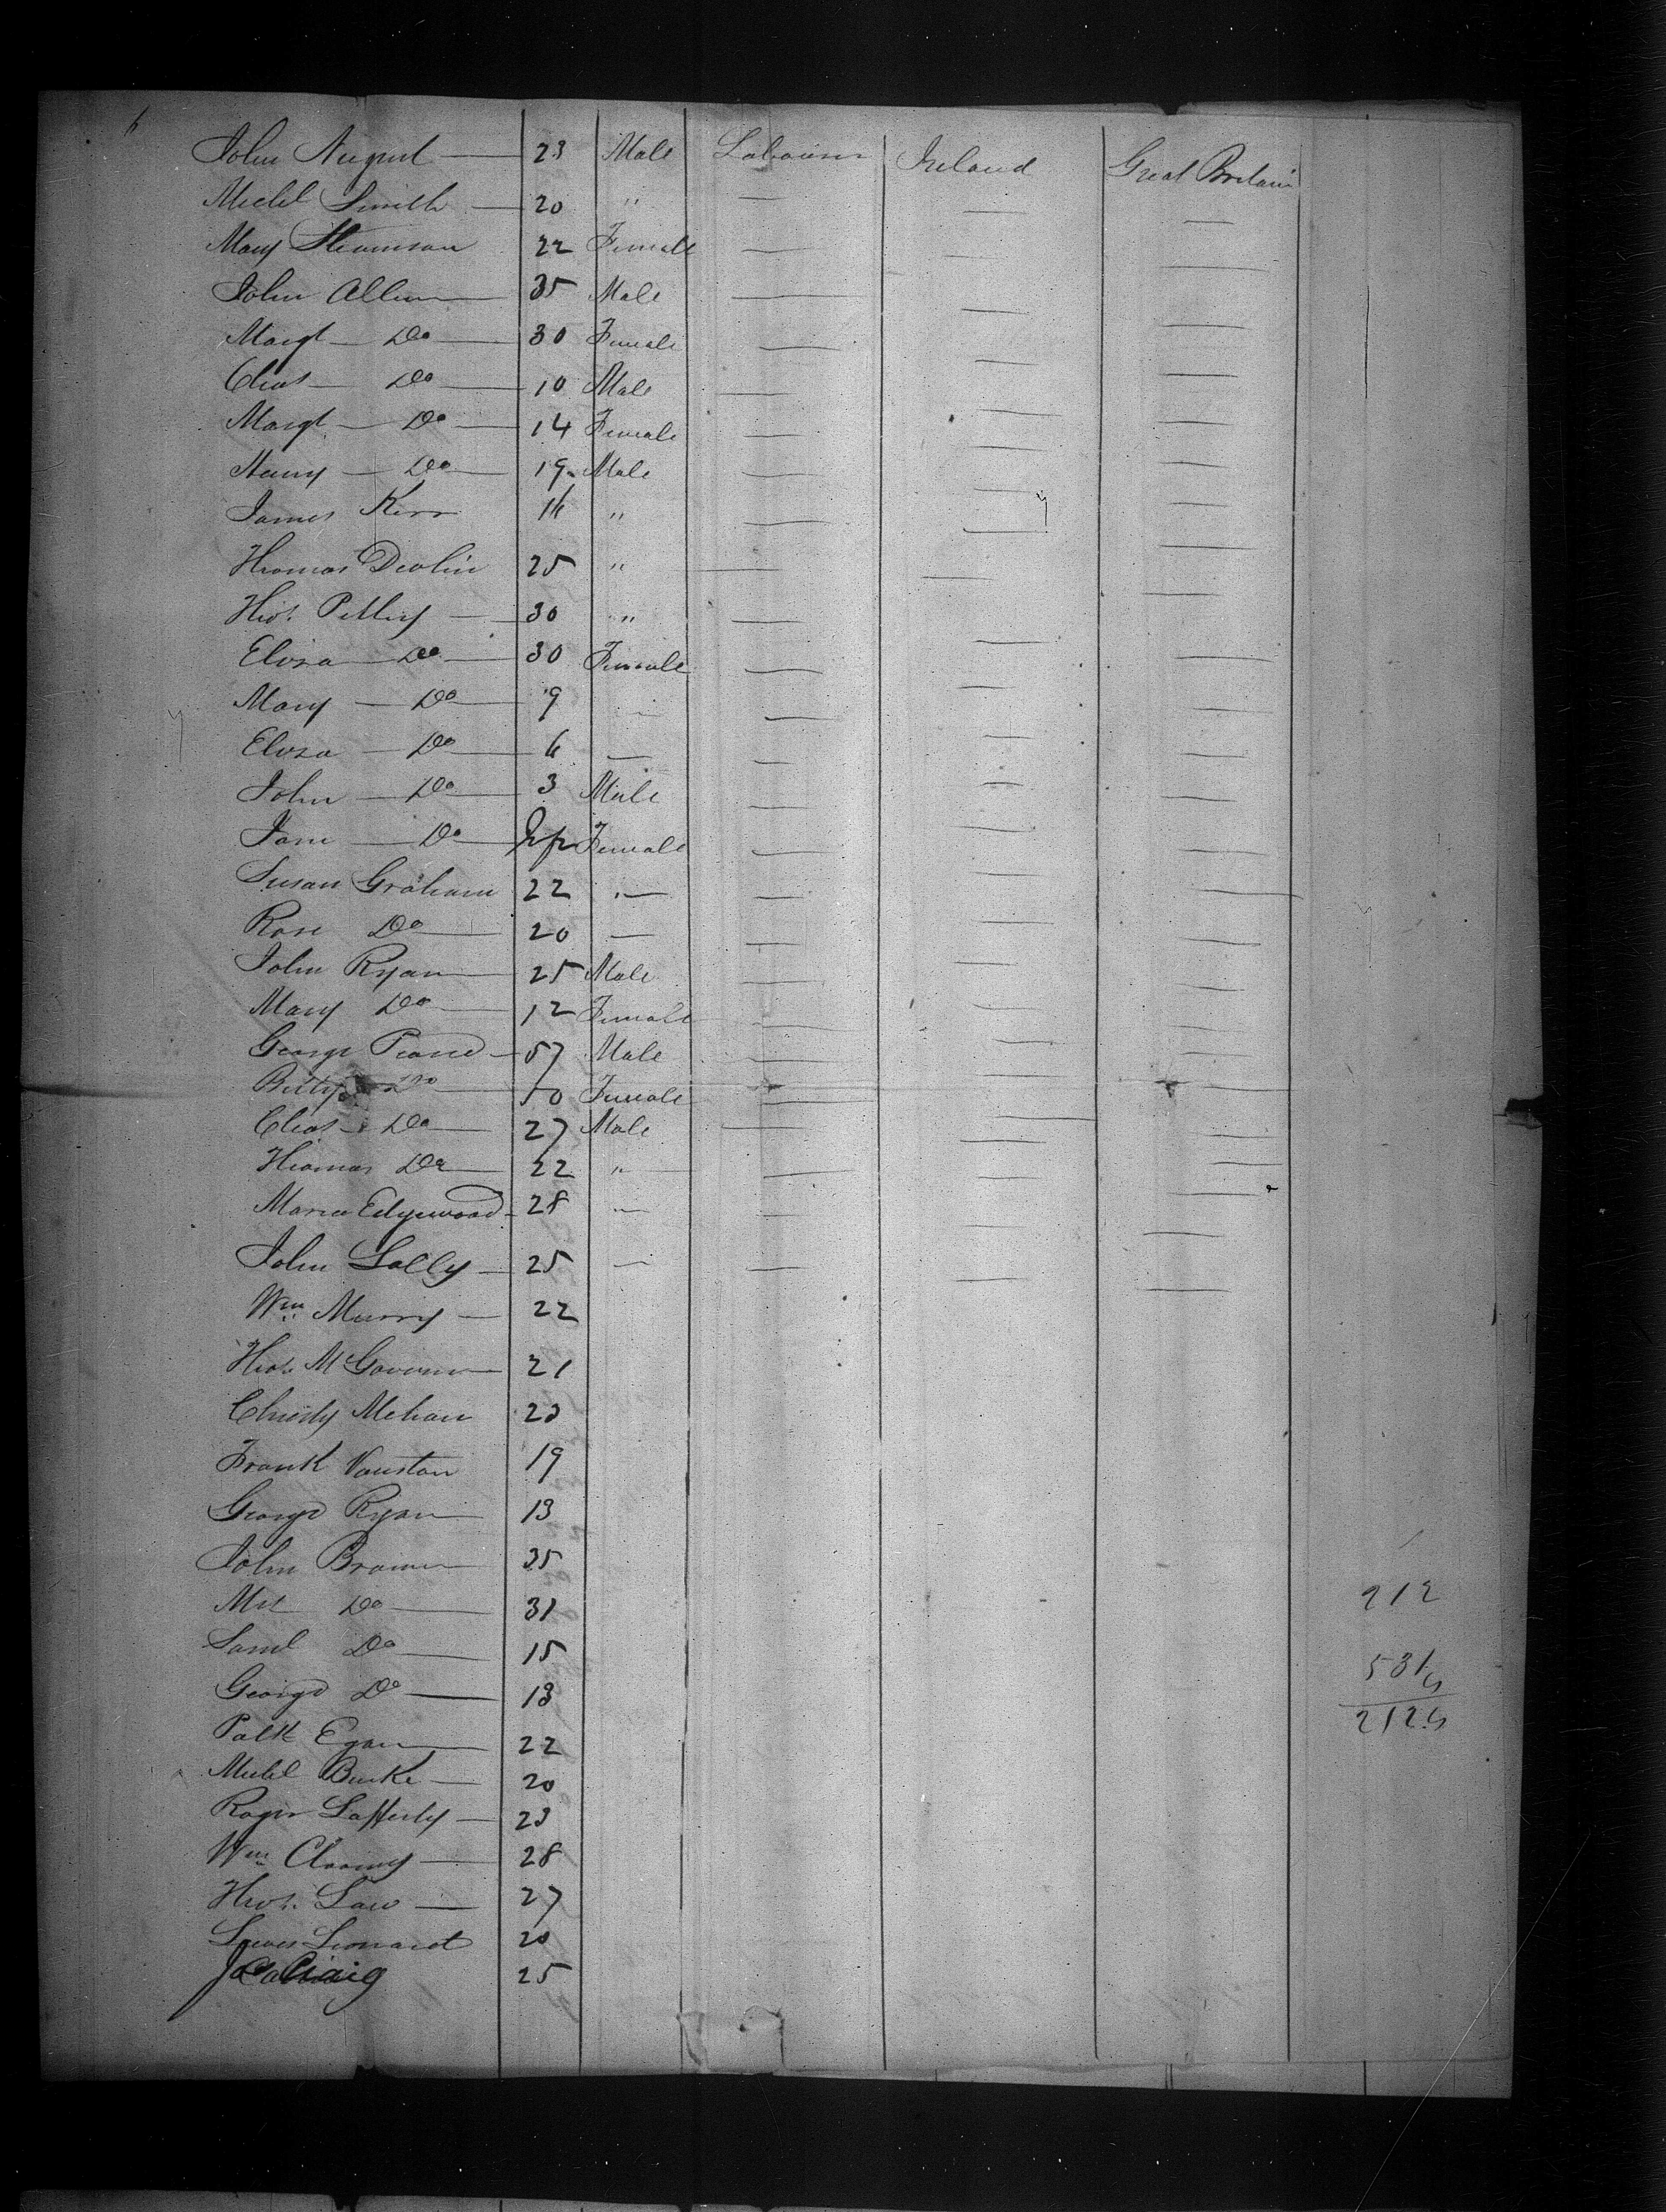 John Nugent 23 Male Labourer Ireland Great Britain
Michl Smith 20 "
Mary Thomson 22 Female
John Allen 35 Male
Margt Do 30 Female
Chas Do 10 Male
Margt Do 14 Female
Henry Do 19 Male
James Kerr 16 "
Thomas Devlin 25 "
Thos. 30 "
Eliza Do 30 Female
Mary Do 9
Eliza Do 6
John Do 3 Male
Jane Do Inft Female
Susan Graham 22
Rose Do 20
John Ryan 25 Male
Mary Do 12 Female
George 57 Male
Betty Do 50 Female
Chas Do 27 Male
Thomas Do 22 "
Maria Edgewood 28
John Lally 25
Wm Murry 22
Thos. McGovern 21
Christy Mehan 23
Frank 19
George Ryan 13
John Brown 35
Mrs Do 31
212
Saml Do 15
531
George Do 13
2124
Patk Egan 22
Michl Burke 20
Roger Lafferty 23
Wm 28
Thos. Law 27
Lewis Leonard 20
Craig 25